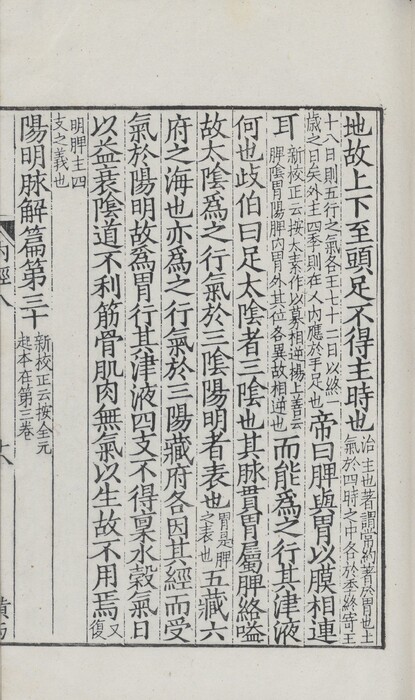 地故上下至頭足不得主時也治主也著謂常約著於胃也土氣於四時之中各於季終寄王
十八日則五行之氣各王七十二日以終一歲之日矣外主四季則在人內應於手足也帝曰脾與胃以膜相連
耳新校正云按太素作以募相逆楊上善云脾陰胃陽脾內胃外其位各異故相逆也而能爲之行其津液
何也歧伯曰足太陰者三陰也其脉貫胃屬脾絡嗌
故太陰爲之行氣於三陰陽明者表也胃是脾之表也五藏六
府之海也亦爲之行氣於三陽藏府各因其經而受
氣於陽明故爲胃行其津液四支不得稟水穀氣日
以益衰陰道不利筋骨肌肉無氣以生故不用焉又復
明脾主四支之義也
陽明脉解篇第三十新校正云按全元起本在第三卷
內經八